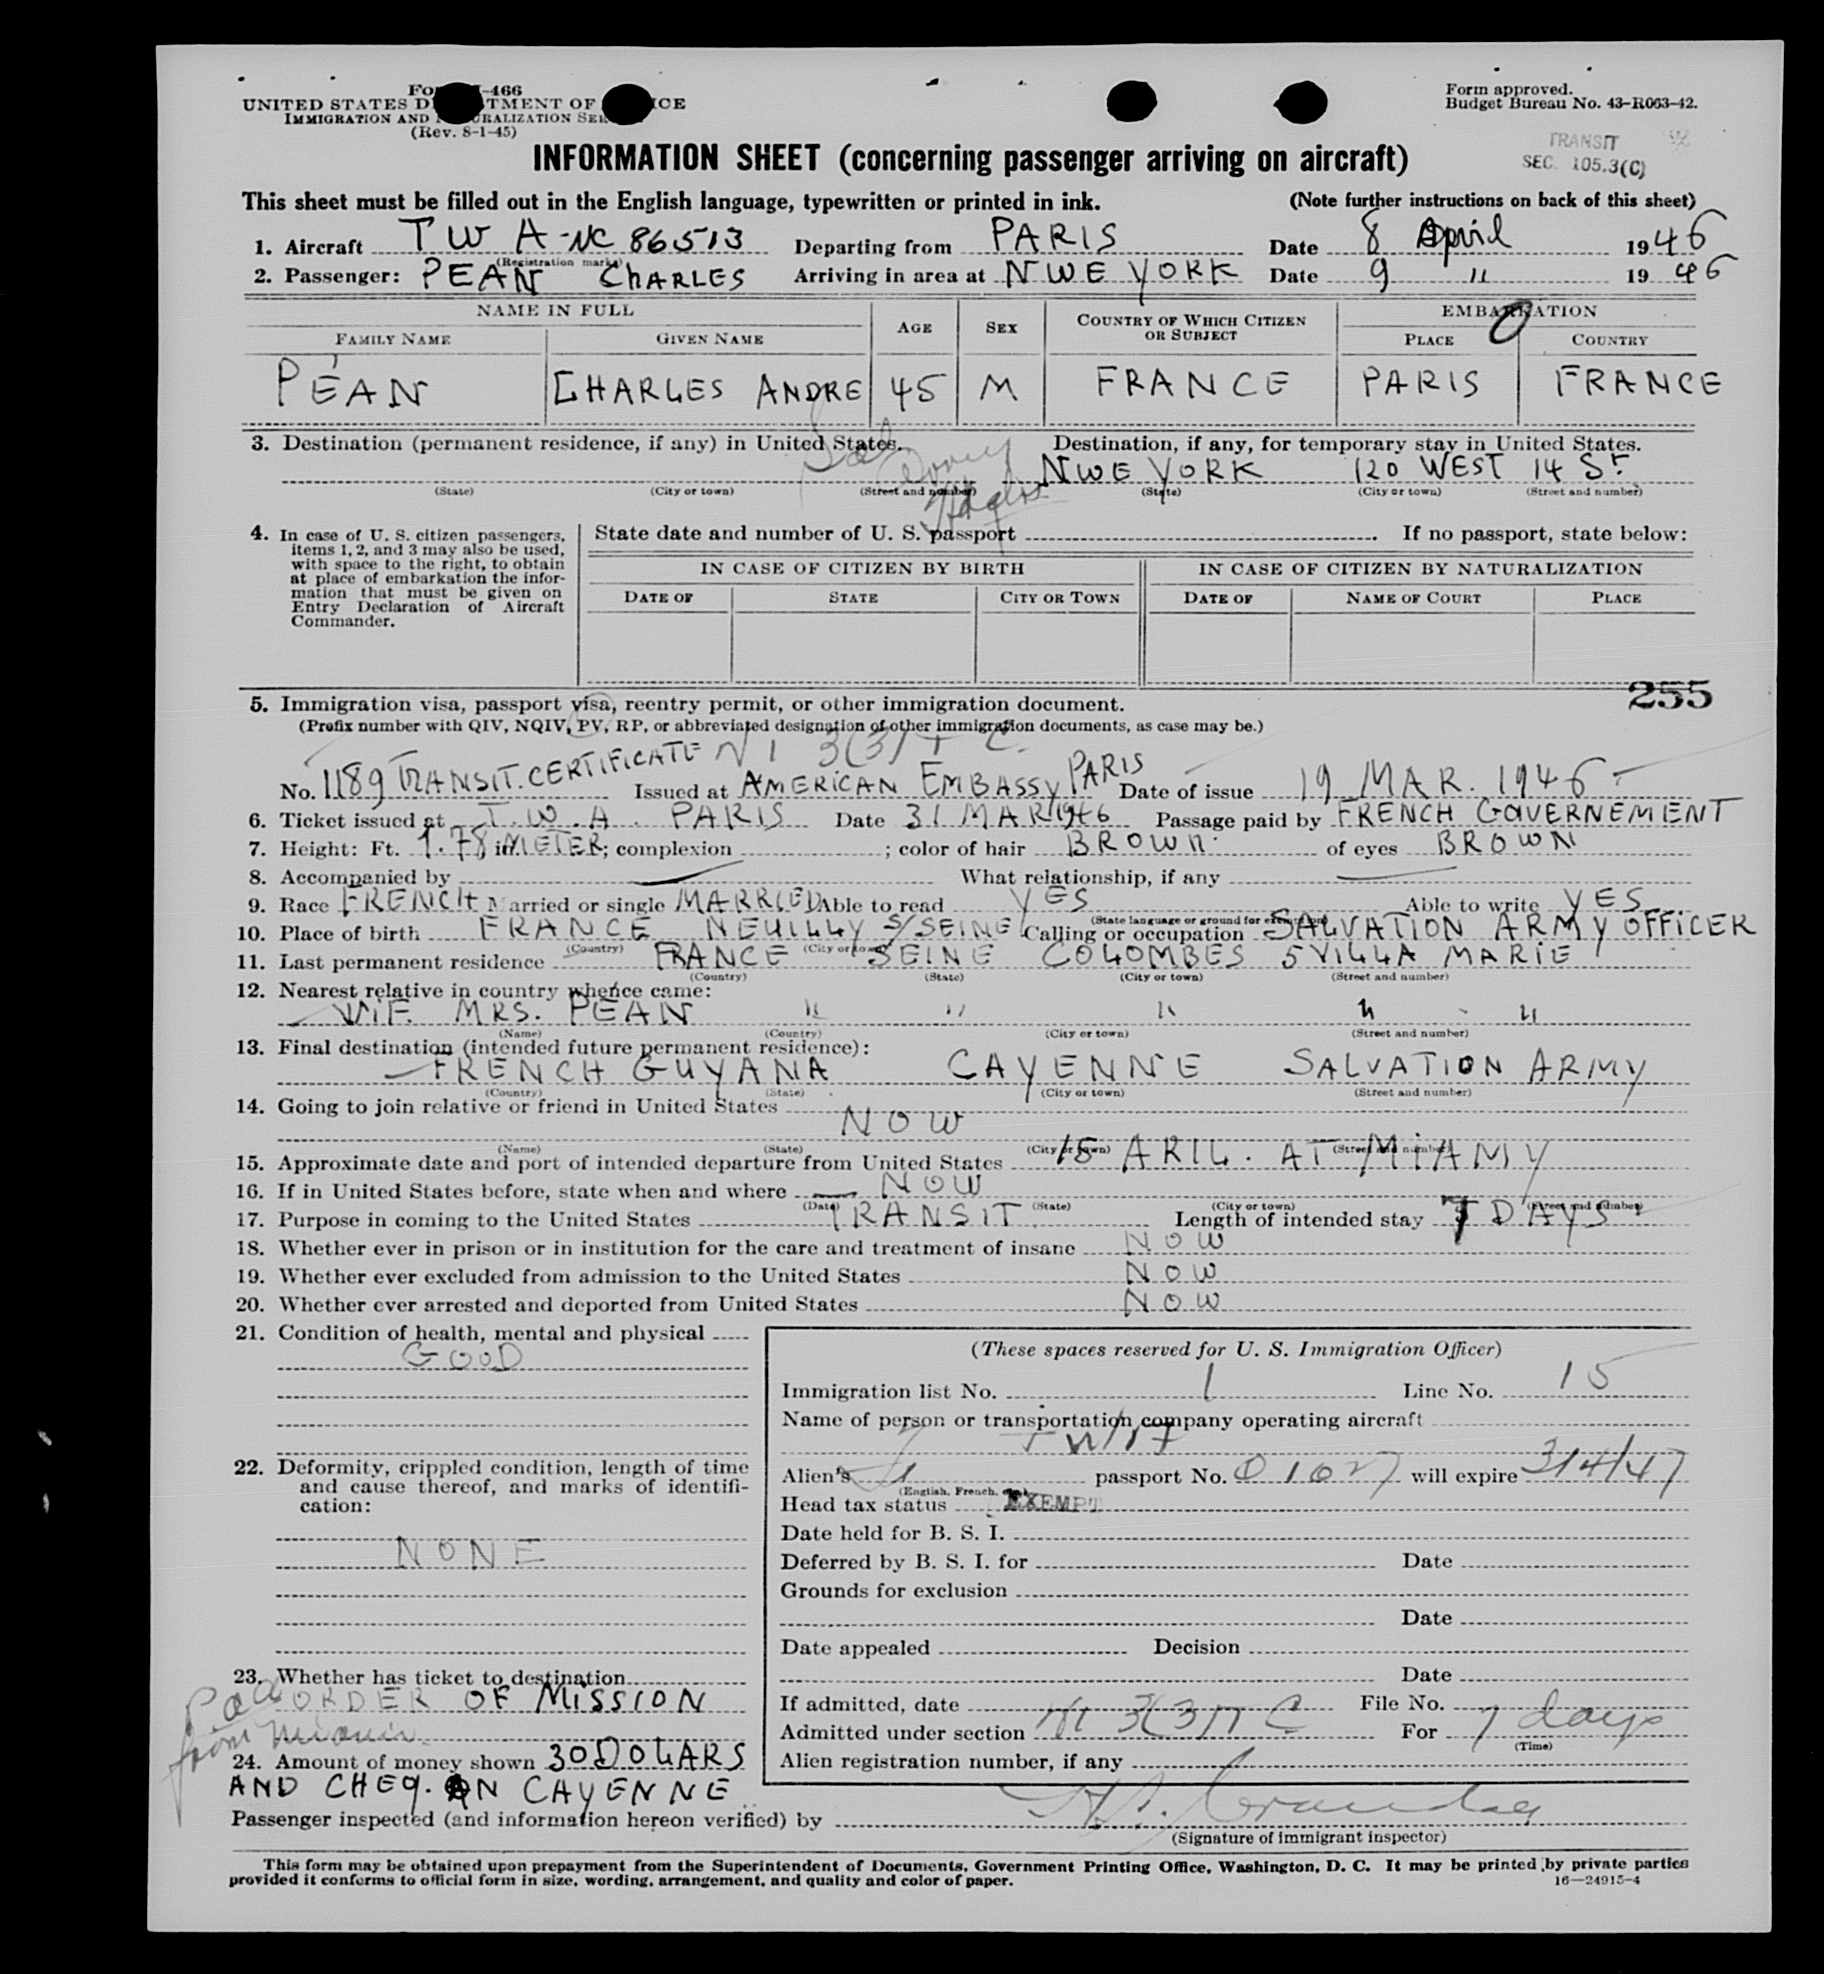 -466
UNITED STATES D TMENT OF CE
IMMIGRATION AND URALIZATION SE
(Rev. 8-1-45)
Form approved.
Budget Bureau No. 43-R063-42.
TRANSIT
SEC. 105.3(C)
INFORMATION SHEET (concerning passenger arriving on aircraft)
This sheet must be filled out in the English language, typewritten or printed in ink. (Note further instructions on back of this sheet)
1. Aircraft TWA-NC 86513 Departing from PARIS Date 8 April 1946
(Registration marks)
2. Passenger: PEAN CHARLES Arriving in area at NWE YORK Date 9 " 1946
NAME IN FULL AGE SEX COUNTRY OF WHICH CITIZEN OR SUBJECT EMBARKATION
FAMILY NAME GIVEN NAME PLACE COUNTRY
PÉAN CHARLES ANDRE 45 M FRANCE PARIS FRANCE
3. Destination (permanent residence, if any) in United States. Destination, if any, for temporary stay in United States.
NWE YORK 120 WEST 14 St
(State) (City or town) (Street and number) (State) (City or town) (Street and number)
4. In case of U. S. citizen passengers, items 1, 2, and 3 may also be used, with space to the right, to obtain at place of embarkation the information that must be given on Entry Declaration of Aircraft Commander.
State date and number of U. S. passport . If no passport, state below:
IN CASE OF CITIZEN BY BIRTH IN CASE OF CITIZEN BY NATURALIZATION
DATE OF STATE CITY OR TOWN DATE OF NAME OF COURT PLACE
255
5. Immigration visa, passport visa, reentry permit, or other immigration document.
(Prefix number with QIV, NQIV, PV, RP, or abbreviated designation of other immigration documents, as case may be.)
No. 1189 TRANSIT. CERTIFICATE Issued at AMERICAN EMBASSY PARIS Date of issue 19 MAR. 1946
6. Ticket issued at T.W.A. PARIS Date 31 MAR 1946 Passage paid by FRENCH GOUVERNEMENT
7. Height: Ft. 1.78 in. METER; complexion ; color of hair BROWN of eyes BROWN
8. Accompanied by What relationship, if any
9. Race FRENCH Married or single MARRIED Able to read YES Able to write YES
(State language or ground for exemption)
10. Place of birth FRANCE NEUILLY S/SEINE Calling or occupation SALVATION ARMY OFFICER
(Country) (City or town)
11. Last permanent residence FRANCE SEINE COLOMBES 5 VILLA MARIE
(Country) (State) (City or town) (Street and number)
12. Nearest relative in country whence came:
WIF. MRS. PEAN " " " " "
(Name) (Country) (City or town) (Street and number)
13. Final destination (intended future permanent residence):
FRENCH GUYANA CAYENNE SALVATION ARMY
(Country) (State) (City or town) (Street and number)
14. Going to join relative or friend in United States
NOW
(Name) (State) (City or town) (Street and number)
15. Approximate date and port of intended departure from United States 15 ARIL. AT MIAMY
16. If in United States before, state when and where NOW
(Date) (State) (City or town) (Street and number)
17. Purpose in coming to the United States TRANSIT Length of intended stay 7 DAYS
18. Whether ever in prison or in institution for the care and treatment of insane NOW
19. Whether ever excluded from admission to the United States NOW
20. Whether ever arrested and deported from United States NOW
21. Condition of health, mental and physical
GOOD
22. Deformity, crippled condition, length of time and cause thereof, and marks of identification:
NONE
23. Whether has ticket to destination
ORDER OF MISSION
from Miami
24. Amount of money shown 30 DOLARS
AND CHEQ. ON CAYENNE
(These spaces reserved for U. S. Immigration Officer)
Immigration list No. 1 Line No. 15
Name of person or transportation company operating aircraft
Alien's passport No. 01027 will expire 3/4/47
(English, French, etc.)
Head tax status EXEMPT
Date held for B. S. I.
Deferred by B. S. I. for Date
Grounds for exclusion
Date
Date appealed Decision
Date
If admitted, date File No.
Admitted under section 3(3) For 7 days
(Time)
Alien registration number, if any
Passenger inspected (and information hereon verified) by
(Signature of immigrant inspector)
This form may be obtained upon prepayment from the Superintendent of Documents, Government Printing Office, Washington, D. C. It may be printed by private parties
provided it conforms to official form in size, wording, arrangement, and quality and color of paper.
16—24915-4